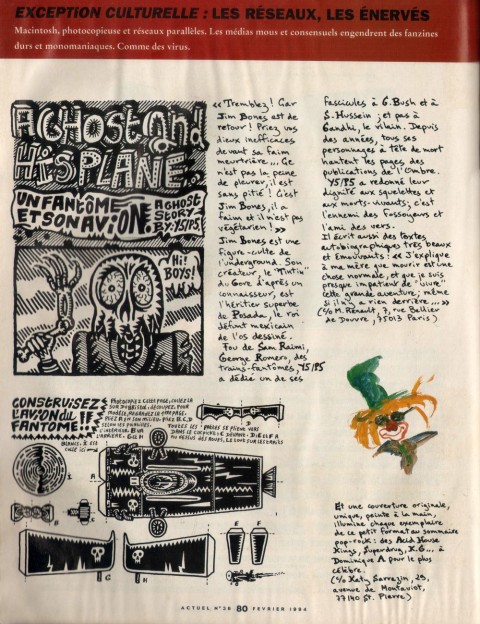 EXCEPTION CULTURELLE : LES RÉSEAUX, LES ÉNERVÉS
Macintosh, photocopieuse et réseaux parallèles. Les médias mous et consensuels engendrent des fanzines
durs et monomaniaques. Comme des virus.
A GHOST And
HiS PLANE.
UN FANTÔME
ET SON AVION.
A GHOST
STORY
BY: Y5/P5
Hi
BOYS!
« Tremblez ! Car
Jim Bones est de
retour ! Priez vos
dieux inefficaces
devant sa faim
meurtrière ... Ce
n'est pas la peine
de pleurer, il est
sans pitié ! C'est
Jim Bones, il a
faim et il n'est pas
végétarien ! »
Jim Bones est une
figure-culte de
l'underground. Son
créateur, le "Tintin"
du Gore d'après un
connaisseur, est
l'héritier superbe
de Posada, le roi
défunt mexicain
de l'os dessiné.
Fou de Sam Raimi,
George Romero, des
trains-fantômes, Y5/P5
a dédié un de ses
fascicules à G. Bush et à
S. Hussein ; et pas à
Gandhi, le vilain. Depuis
des années, tous ses
personnages à tête de mort
hantent les pages des
publications de l'Ombre.
Y5/P5 a redonné leur
dignité aux squelettes et
aux morts-vivants, c'est
l'ennemi des fossoyeurs et
l'ami des vers.
Il écrit aussi des textes
autobiographiques très beaux
et émouvants : « J'explique
à ma mère que mourir est une
chose normale, et que je suis
presque impatient de "vivre"
cette grande aventure ; même
si il n'y a rien derrière ... »
(C/o M. Rénault, 7, rue Bellier
de Douvre, 75013 Paris)
CONSTRUISEZ
L'AVION du
FANTOME !!
PHOTOCOPIEZ CETTE PAGE, COLLEZ LA
SUR DU BRISTOL, DÉCOUPEZ. POUR
MODÈLE, REGARDEZ LE 1
SELON LES POINTILLÉS.
A
B
C
D
E
F
G
H
Et une couverture originale,
unique, peinte à la main,
illumine chaque exemplaire
de ce petit format au sommaire
pop-rock : des Acid House
Kings, Superdrug, K.G... à
Dominique A pour le plus
célèbre.
(C/o Katy Sarrazin, 29,
avenue de Montaviot,
77140 St. Pierre)
ACTUEL N°38 80 FÉVRIER 1994